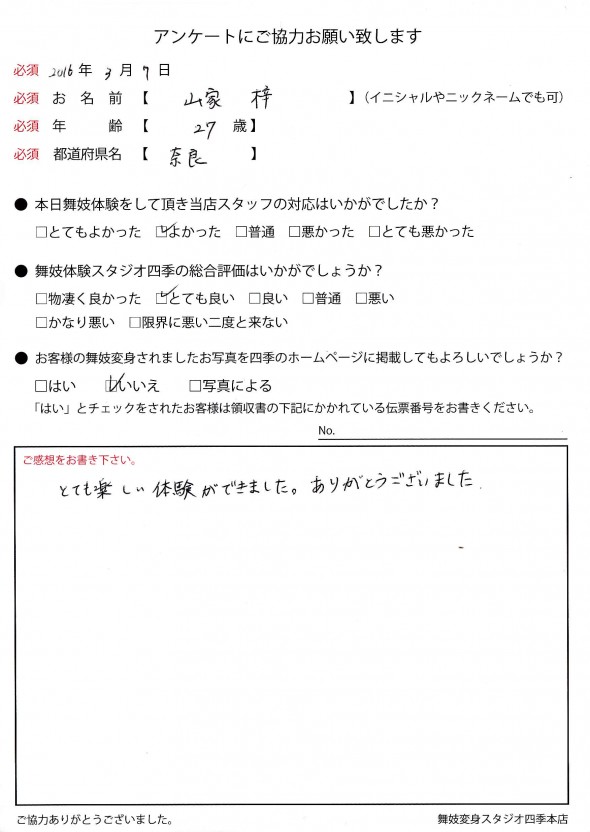 アンケートにご協力お願い致します
必須 2016年 3月 7日
必須 お名前 【 山家 梓 】(イニシャルやニックネームでも可)
必須 年齢 【 27 歳】
必須 都道府県名 【 奈良 】
● 本日舞妓体験をして頂き当店スタッフの対応はいかがでしたか？
□とてもよかった ☑よかった □普通 □悪かった □とても悪かった
● 舞妓体験スタジオ四季の総合評価はいかがでしょうか？
□物凄く良かった ☑とても良い □良い □普通 □悪い
□かなり悪い □限界に悪い二度と来ない
● お客様の舞妓変身されましたお写真を四季のホームページに掲載してもよろしいでしょうか？
□はい ☑いいえ □写真による
「はい」とチェックをされたお客様は領収書の下記にかかれている伝票番号をお書きください。
No.
ご感想をお書き下さい。
とても楽しい体験ができました。ありがとうございました
ご協力ありがとうございました。 舞妓変身スタジオ四季本店